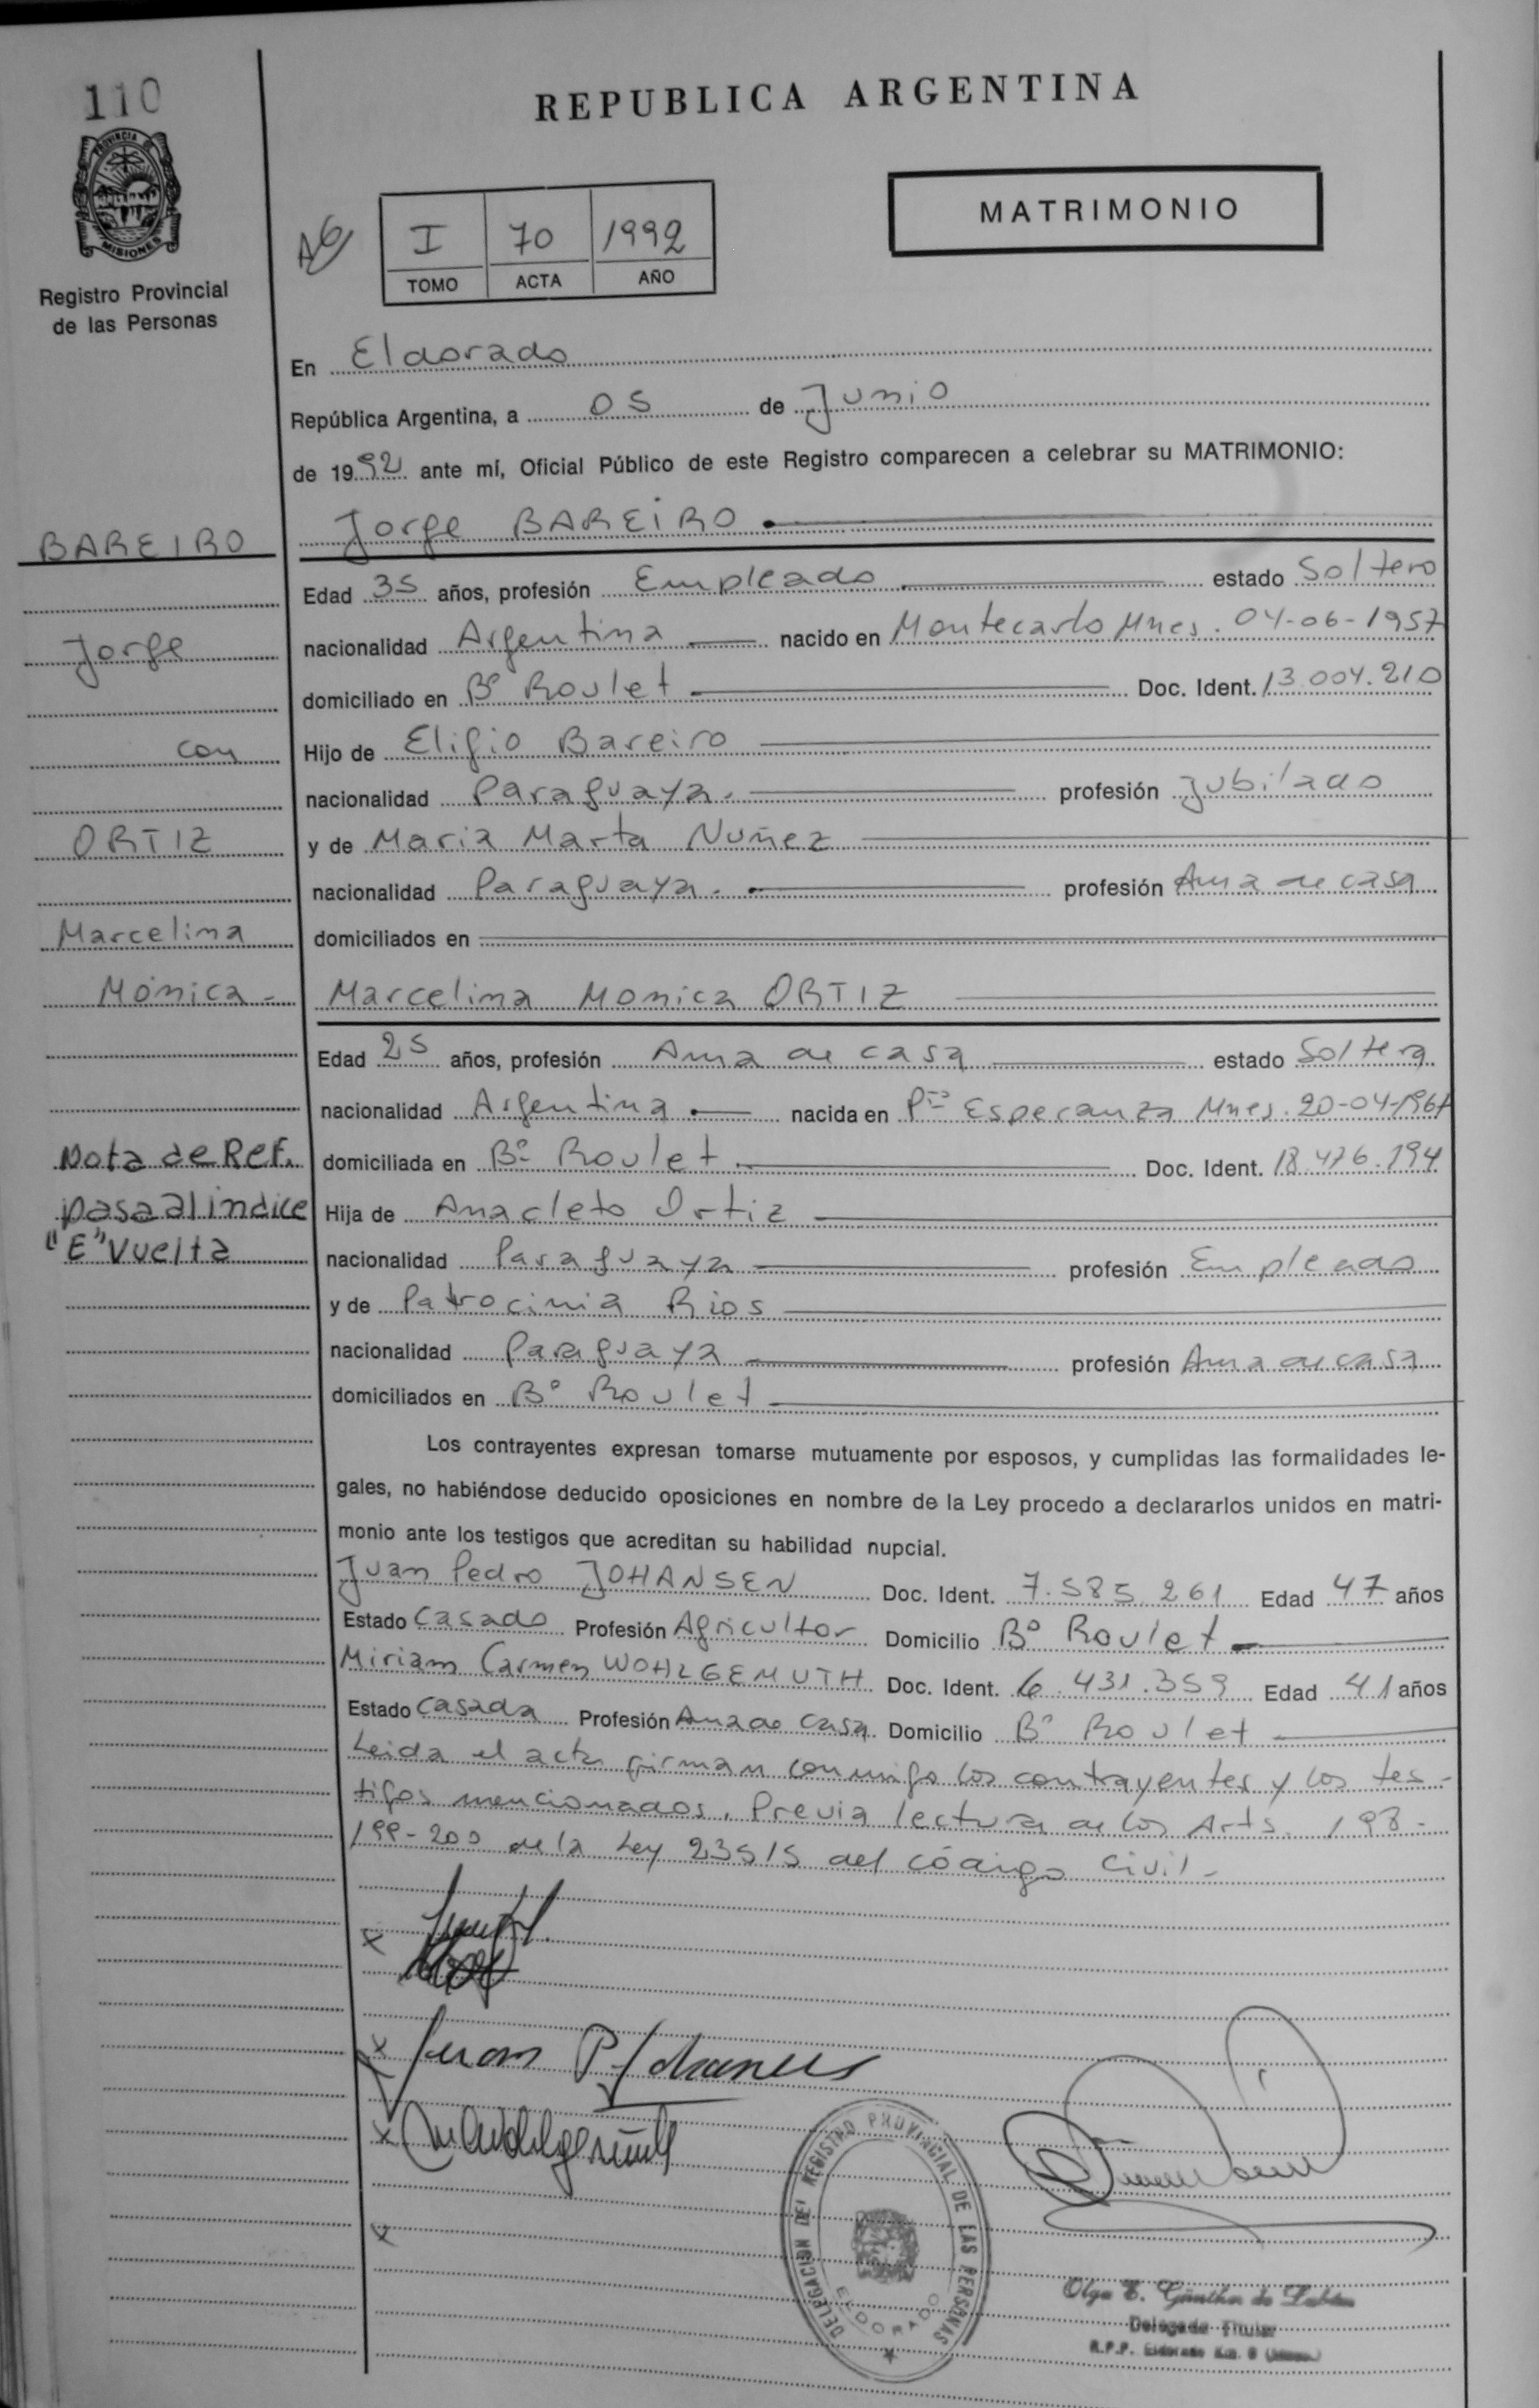 110
PROVINCIA DE
MISIONES
Registro Provincial
de las Personas
REPUBLICA ARGENTINA
MATRIMONIO
I 70 1992
TOMO ACTA AÑO
En Eldorado
República Argentina, a 05 de Junio
de 1992 ante mí, Oficial Público de este Registro comparecen a celebrar su MATRIMONIO:
BAREIRO
Jorge
con
ORTIZ
Marcelina
Mónica -
Nota de Ref.
pasa al indice
"E" Vuelta
Jorge BAREIRO
Edad 35 años, profesión Empleado estado Soltero
nacionalidad Argentina nacido en Montecarlo Mnes. 04-06-1957
domiciliado en Bº Roulet Doc. Ident. 13.004.210
Hijo de Eligio Bareiro
nacionalidad Paraguaya. profesión Jubilado
y de Maria Marta Nuñez
nacionalidad Paraguaya. profesión Ama de casa
domiciliados en
Marcelina Monica ORTIZ
Edad 25 años, profesión Ama de casa estado Soltera
nacionalidad Argentina nacida en Pto Esperanza Mnes. 20-04-1967
domiciliada en Bº Roulet Doc. Ident. 18.476.194
Hija de Anacleto Ortiz
nacionalidad Paraguaya profesión Empleado
y de Patrocinia Rios
nacionalidad Paraguaya profesión Ama de casa
domiciliados en Bº Roulet
Los contrayentes expresan tomarse mutuamente por esposos, y cumplidas las formalidades le-
gales, no habiéndose deducido oposiciones en nombre de la Ley procedo a declararlos unidos en matri-
monio ante los testigos que acreditan su habilidad nupcial.
Juan Pedro JOHANSEN Doc. Ident. 7.585.261 Edad 47 años
Estado Casado Profesión Agricultor Domicilio Bº Roulet
Miriam Carmen WOHLGEMUTH Doc. Ident. 6.431.359 Edad 41 años
Estado Casada Profesión Ama de Casa Domicilio Bº Roulet
Leida el acta firman conmigo los contrayentes y los tes-
tigos mencionados. Previa lectura de los Arts. 198-
199-200 de la Ley 23515 del código Civil-
x
x Juan P. Johansen
x
x
DELEGACION DEL REGISTRO PROVINCIAL DE LAS PERSONAS
ELDORADO
Olga E. Günther de
Delegada Titular
R.P.P. Eldorado Km. 9